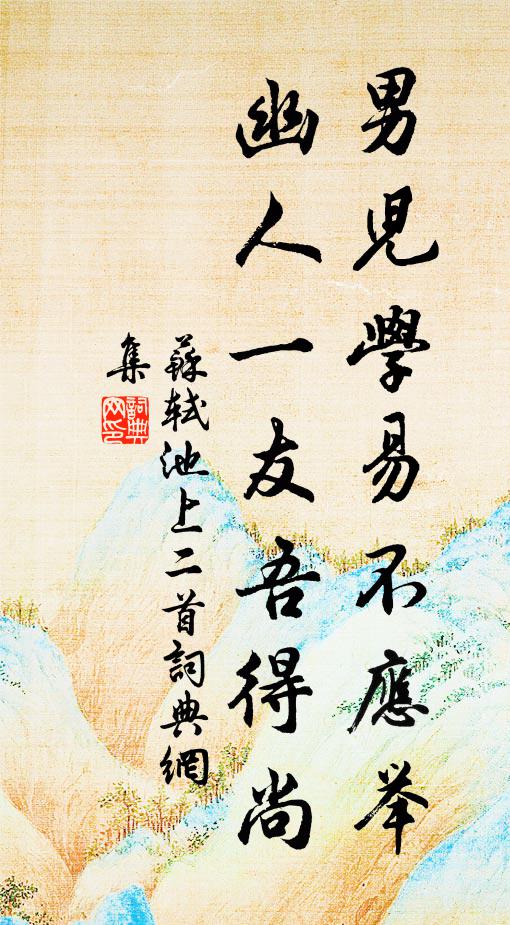 男児學易不應举
幽人一友吾得尚
蘇軾池上二首詞典網
集
詞典網印